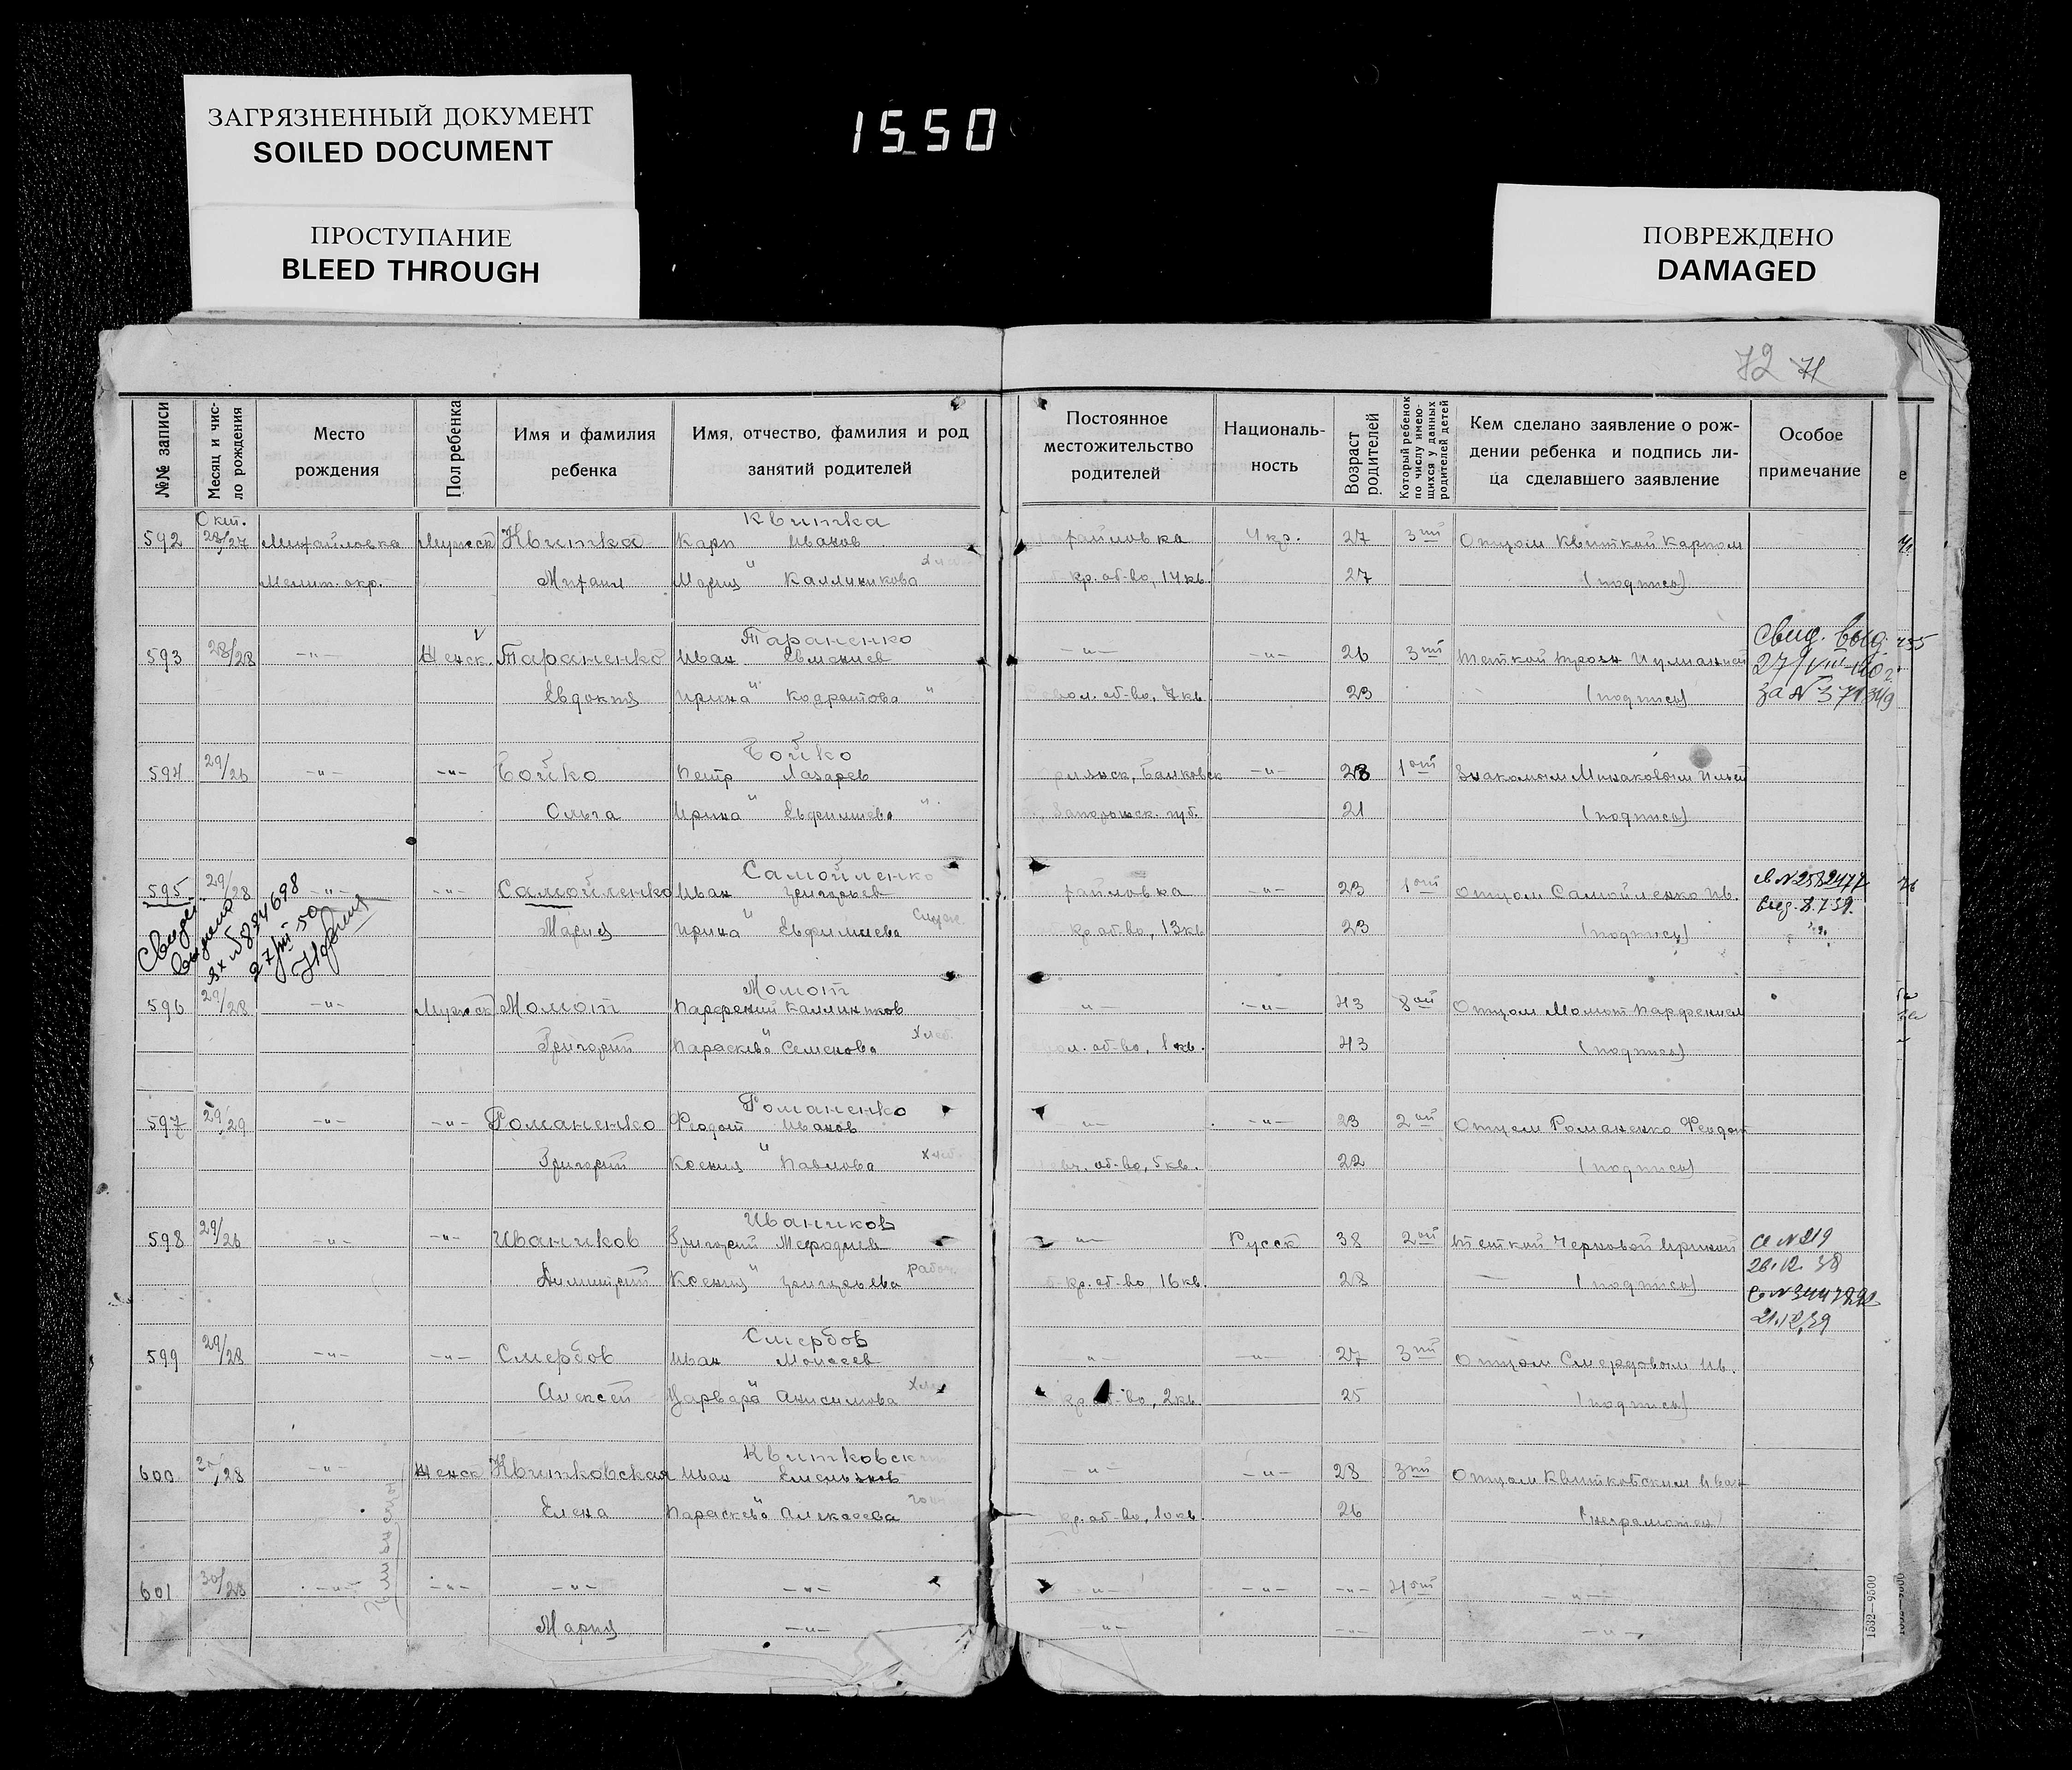 ЗАГРЯЗНЕННЫЙ ДОКУМЕНТ
SOILED DOCUMENT
ПРОСТУПАНИЕ
BLEED THROUGH
1550
ПОВРЕЖДЕНО
DAMAGED
72 71
№№ записи
Месяц и чис-
ло рождения
Место
рождения
Пол ребенка
Имя и фамилия
ребенка
Имя, отчество, фамилия и род
занятий родителей
Постоянное
местожительство
родителей
Националь-
ность
Возраст
родителей
Который ребенок
по числу имею-
щихся у данных
родителей детей
Кем сделано заявление о рож-
дении ребенка и подпись ли-
ца сделавшего заявление
Особое
примечание
Окт. Квитка
592 28/27 Михайловка Мужеск Квитка Карп Иванов райловка Укр. 27 3ий Отцом Квиткой Карпом
Мелит. окр. Михаил Мария " Каллиникова кр. об-во, 14 кв. 27 (подпись)
Тараненко Свид. выд.
593 28/28 -"- Женск. Тараненко Иван Евмениев -"- -"- 26 3ий Теткой 27/VIII-40 г.
Евдокия Ирина " Кодратова " об-во, 7 кв. 23 (подпись) за № 371349
Бойко
594 29/26 -"- -"- Бойко Петр Лазарев -"- 23 1ый Знакомым Минаковым
Ольга Ирина " Евфимиева " Запорожск. губ. 21 (подпись)
Самойленко
595 29/28 -"- -"- Самойленко Иван Григорьев райловка -"- 23 1ый Отцом Самойленко Ив. св №2582477
выд. 8.7.39.
Мария Ирина " Евфимиева кр об-во, 13 кв 23 (подпись)
Свидет.
выдано
№ 834698
27/VII-50
Момот
596 29/28 -"- Мужеск Момот Парфений Каллиников -"- -"- 43 8ой Отцом Момот Парфением
Григорий Параскева " Семенова Хлеб. об-во, 1 кв. 43 (подпись)
Романенко
597 29/29 -"- -"- Романенко Феодот Иванов -"- -"- 23 2ой Отцом Романенко Феодот
Григорий Ксения " Павлова Хлеб. об-во, 5 кв. 22 (подпись)
Иванчков
598 29/26 -"- -"- Иванчков Григорий Мефодиев -"- Русск 38 2ой Теткой Черновой Ириной св №219
26.12.38
Димитрий Ксения " Григорьева рабоч. кр. об-во, 16 кв. 28 (подпись)
21.12.39
Смердов
599 29/28 -"- -"- Смердов Иван Моисеев -"- -"- 27 3ий Отцом Смердовым Ив.
Алексей Варвара " Анисимова кр об-во, 2 кв 25 (подпись)
Квитковский
600 28 -"- Женск Квитковская Иван Емельянов -"- -"- 28 3ий Отцом Квитковским Иван
Елена Параскева " Алексеева кр. об-во, 10 кв. 26 (неграмотен)
601 30/28 -"- -"- -"- -"- -"- -"- -"- 4ый -"-
Мария -"- -"- -"- -"-
1532—9500